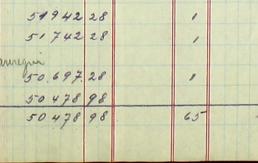 51942 28 1
51742 28 1
50.697.28 1
50478 98
50478 98 65